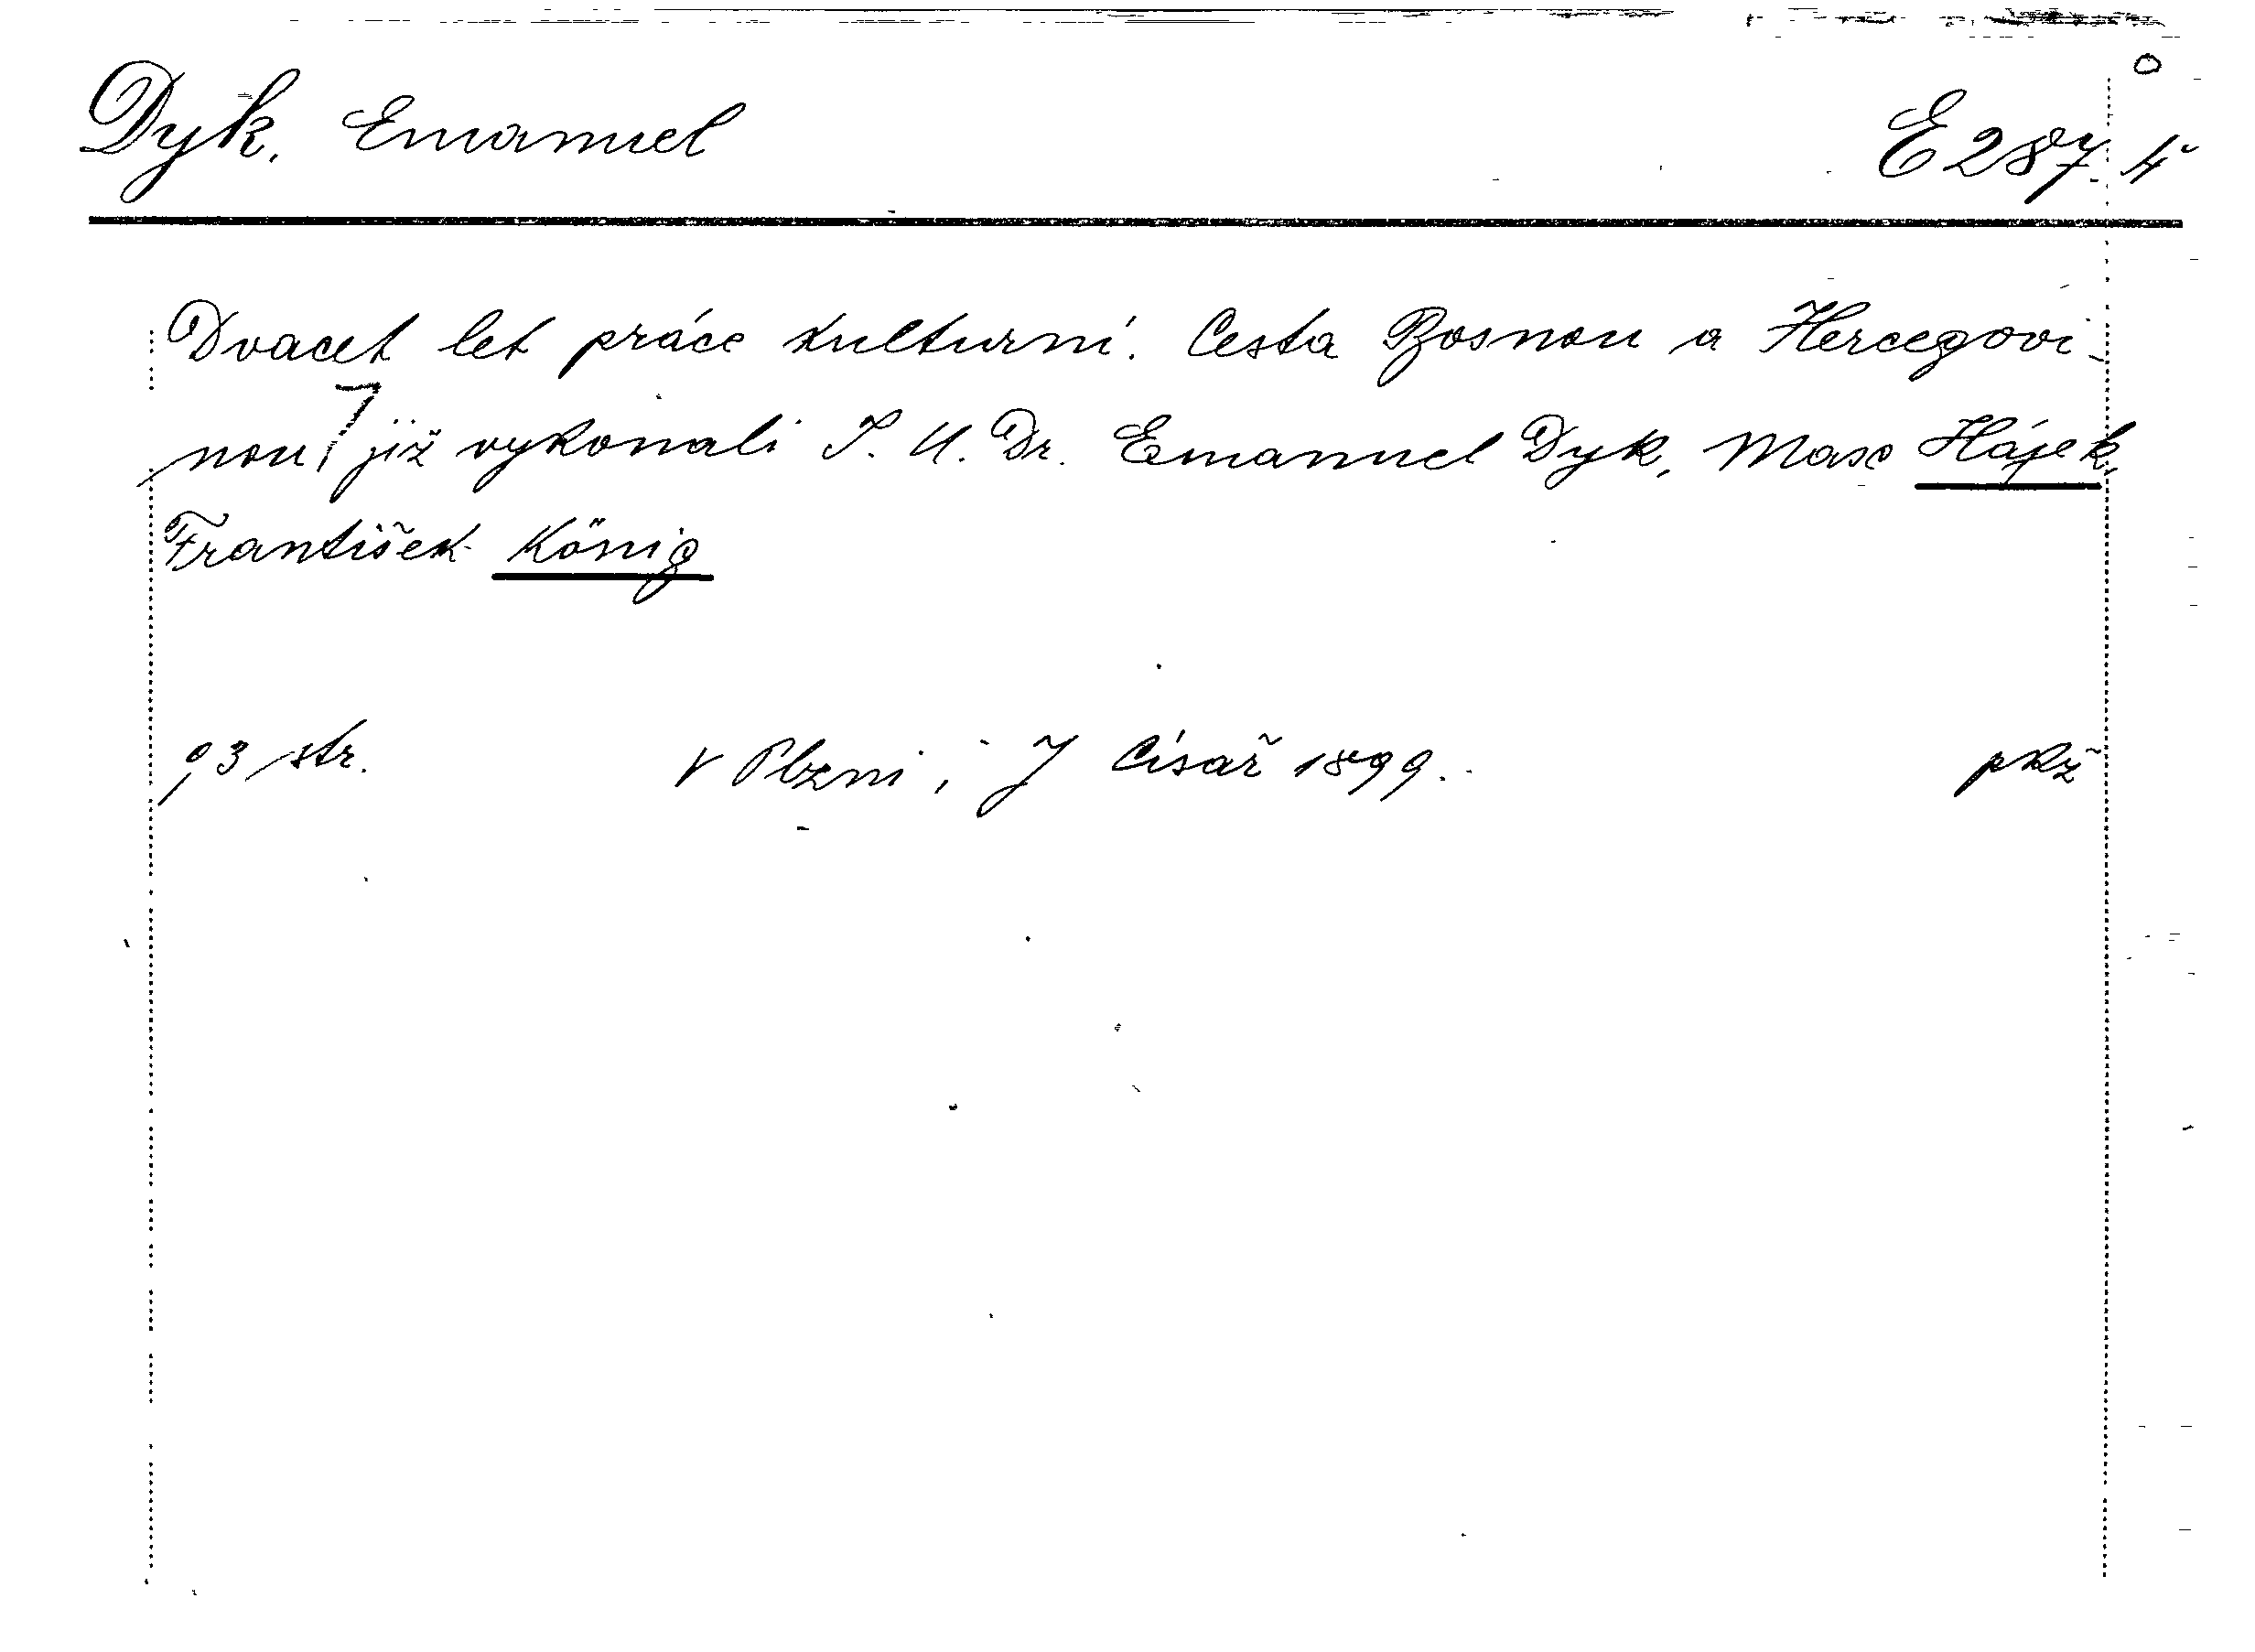 Dyk, Emanuel E 287. 4
Dvacet let práce kulturní. Cesta Bosnou a Hercegovi-
nou, již vykonali J. U. Dr. Emanuel Dyk, Max Hájek,
František König
93 str. V Plzni, J Císař 1899. pkž